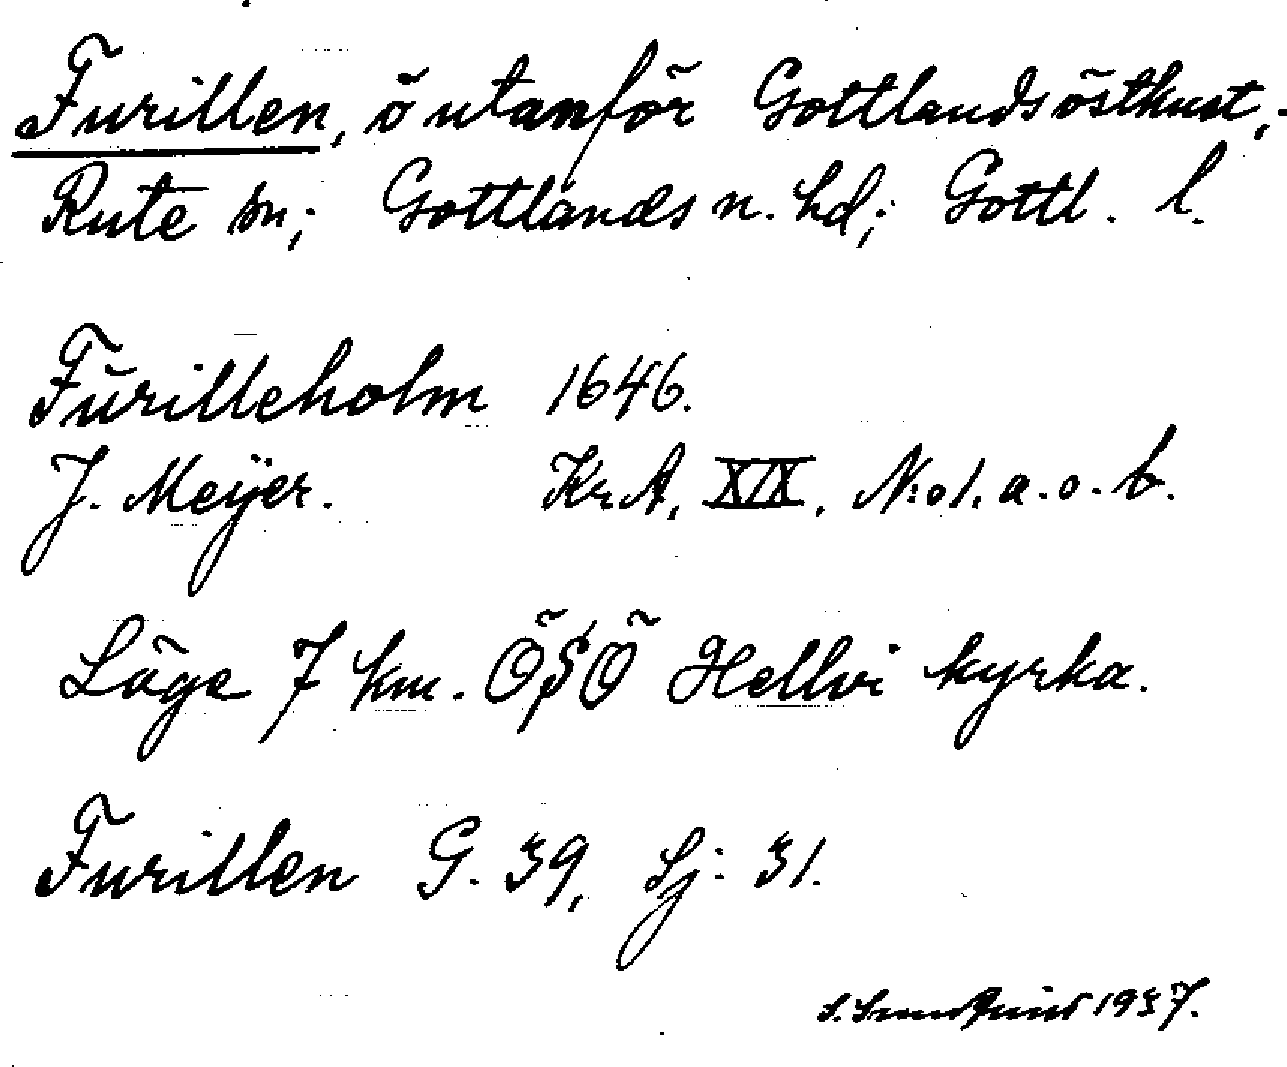 Furillen, ö utanför Gottlands östkust,
Rute sn; Gottlands n. hd; Gottl. l.
Furilleholm 1646.
J. Meÿer. Kr. A, XIX, N:o 1. a. o. b.
Läge 7 km. ÖSÖ Hellvi kyrka.
Furillen G. 39, Sj: 31.
1937.